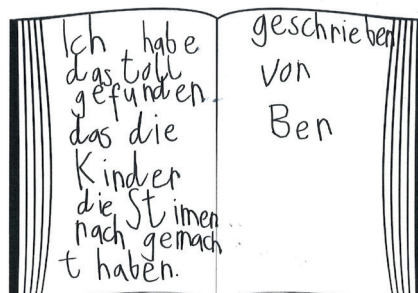 Ich habe
das toll
gefunden
das die
Kinder
die Stimen
nach gemach
t haben.
geschrieben
von
Ben